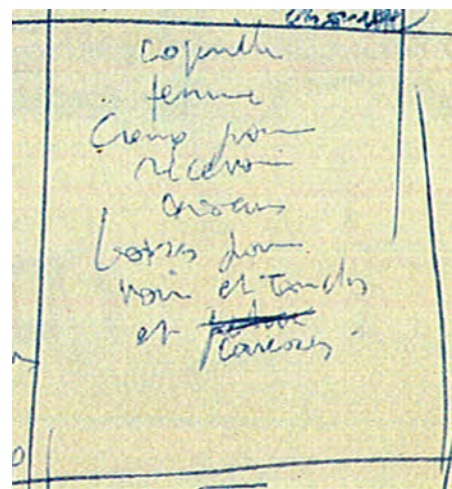 coquille
femme
Creux pour
recevoir
creseaux
bosses pour
voir et Toucher
et
caresser.